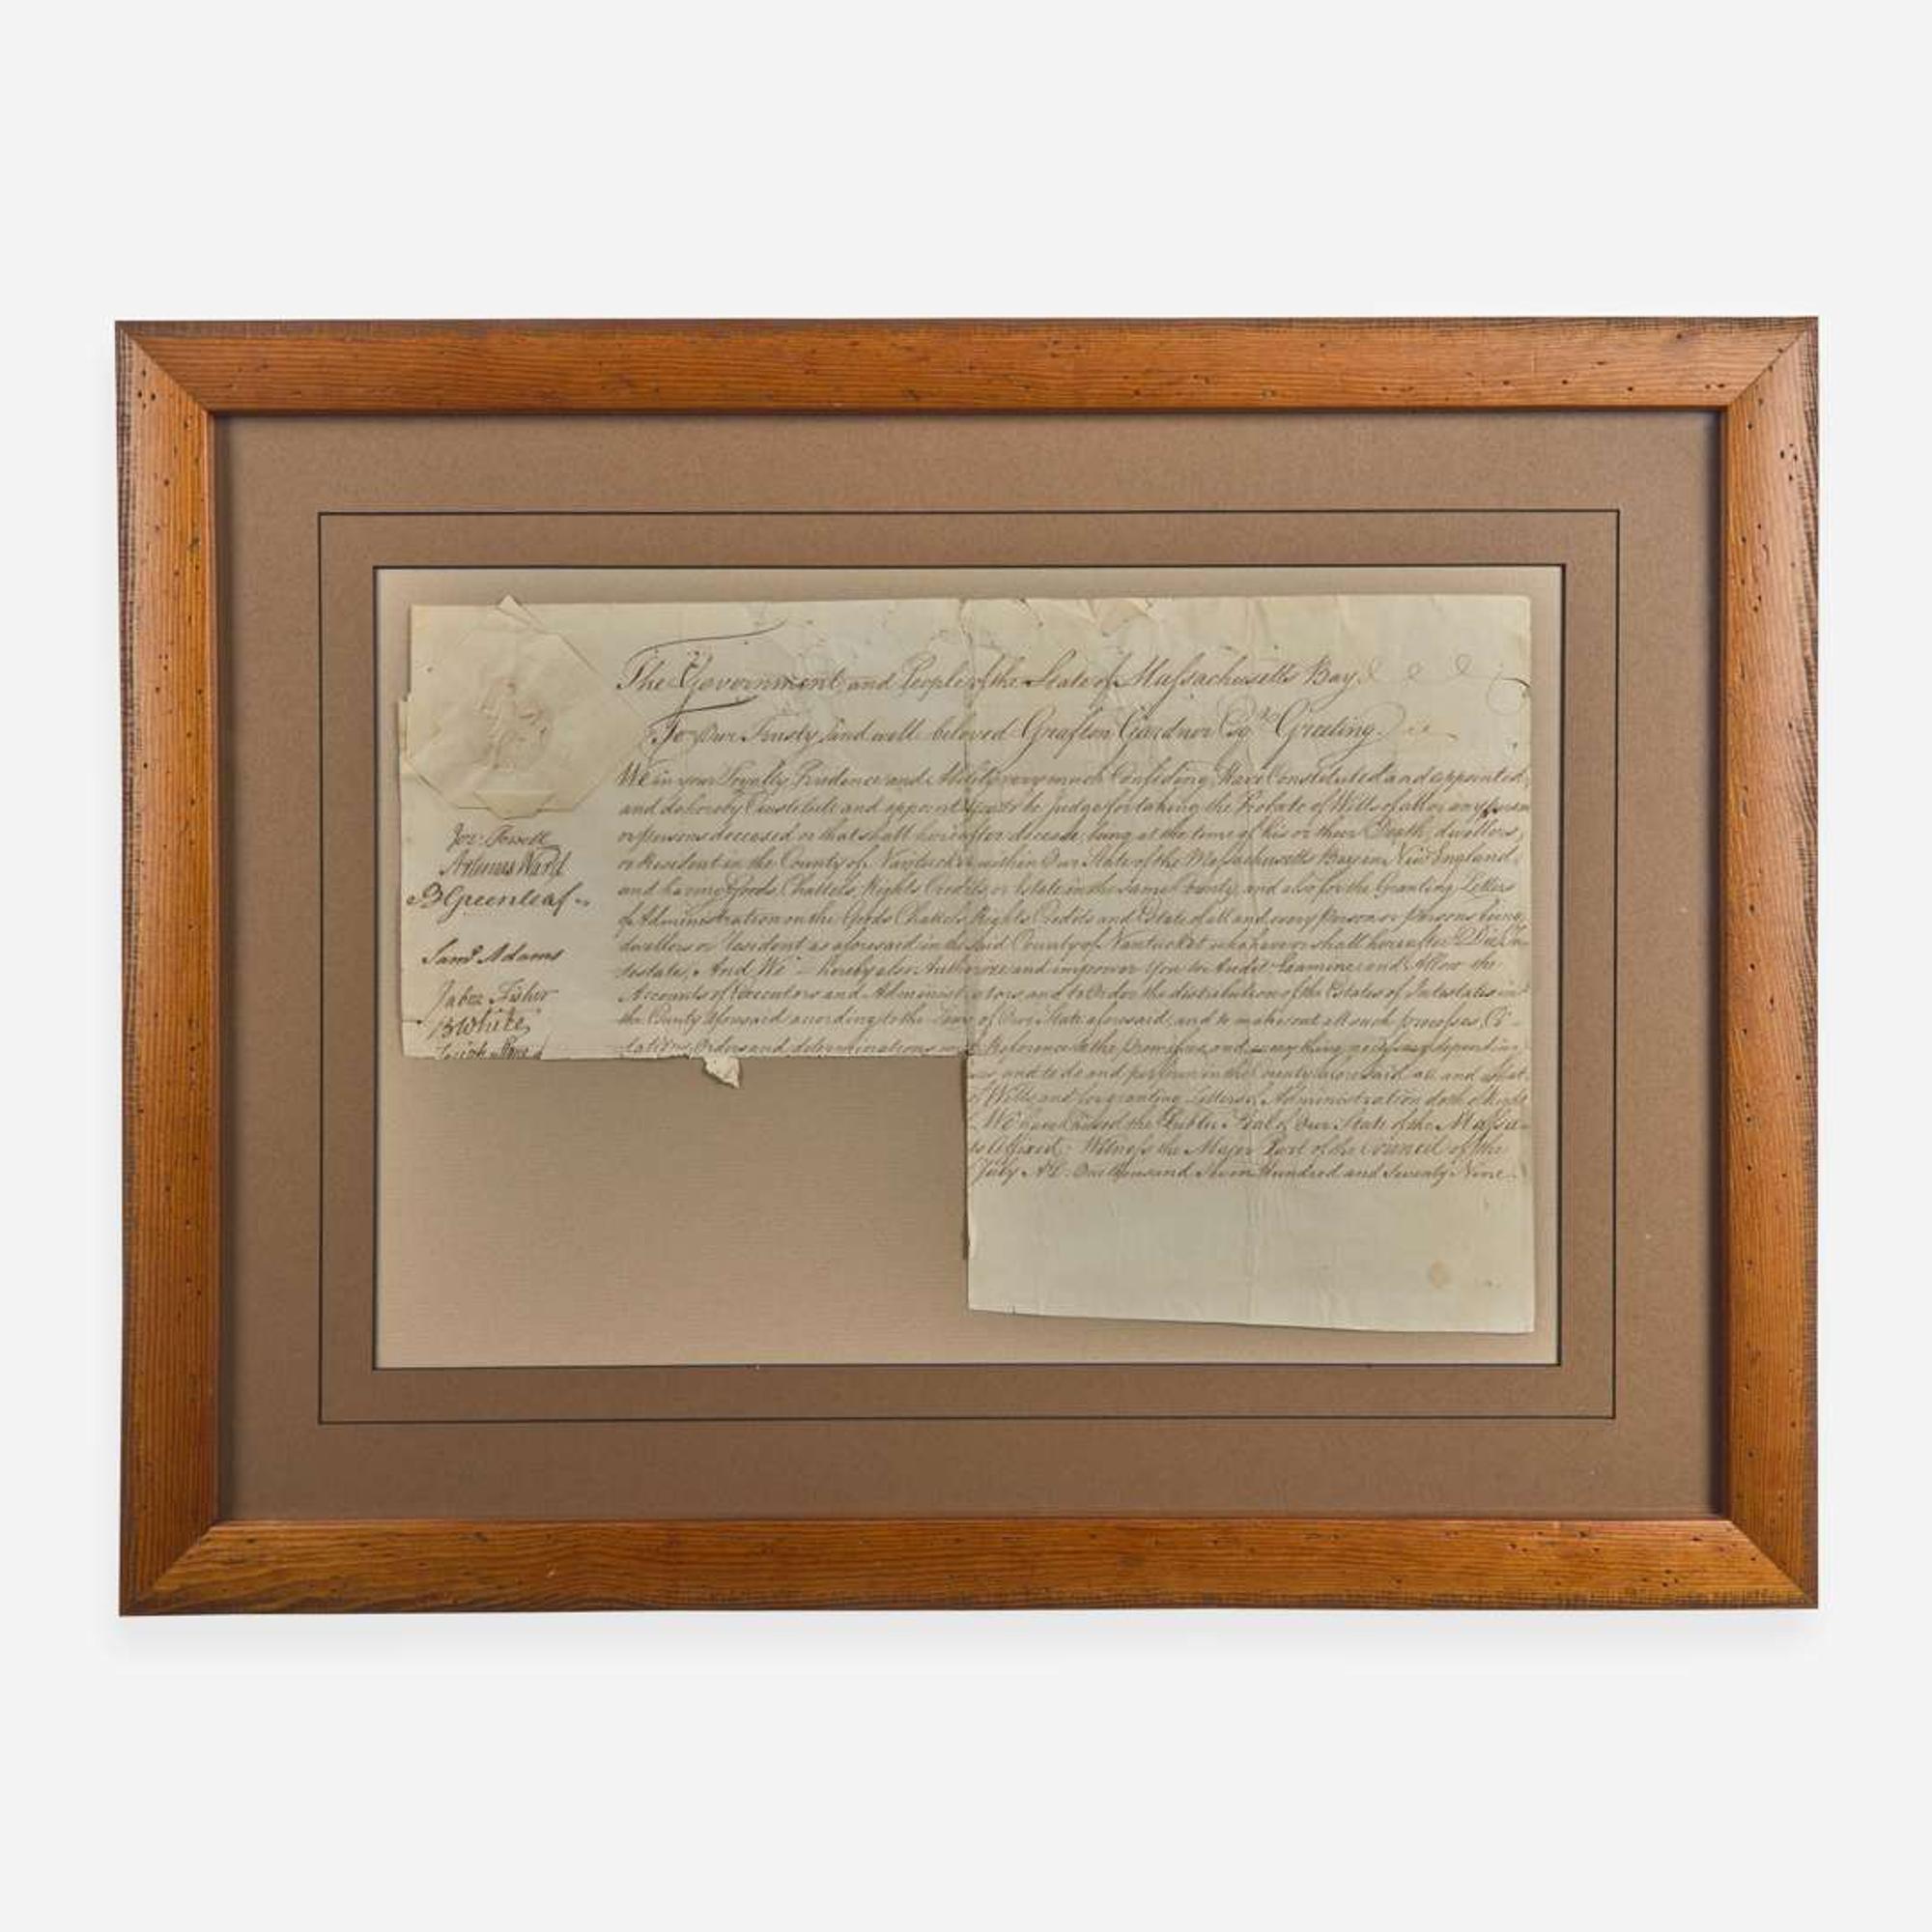 The Government and People of the State of Massachusetts Bay
To Our Trusty and well beloved Grafton Gardner Esqr. Greeting
We in your Loyalty Prudence and Ability very much Confiding, Have Constituted and appointed,
and do hereby Constitute and appoint You to be Judge for taking the Probate of Wills of all or any person
or persons deceased or that shall hereafter decease, being at the time of his or their Death, dwellers,
or Resident in the County of Nantucket within Our State of the Massachusetts Bay in New England,
and having Goods, Chattels, Rights Credits, or Estate in the same County, and also for the Granting Letters
of Administration on the Goods Chattels Rights Credits and Estate of all and every Person or Persons being
dwellers or Resident as aforesaid in the said County of Nantucket who have or shall hereafter Die In-
testate, And We hereby also Authorize and impower You to Audit Examine and Allow the
Accounts of Executors and Administrators and to Order the distribution of the Estates of Intestates in
the County aforesaid according to the Laws of Our State aforesaid, and to make out all such processes, Ci-
tations, Orders and determinations in Reference to the Premises, and every thing necessary depending
and to do and perform in the County aforesaid all and what
of Wills and for granting Letters of Administration doth of Right
We have Caused the Public Seal of Our State of the Massa-
to Affixed. Witness the Major Part of the Council of the
July A.D. One thousand Seven Hundred and Seventy Nine
Jer: Powell
Artemas Ward
B Greenleaf
Saml Adams
Jabez Fisher
B White